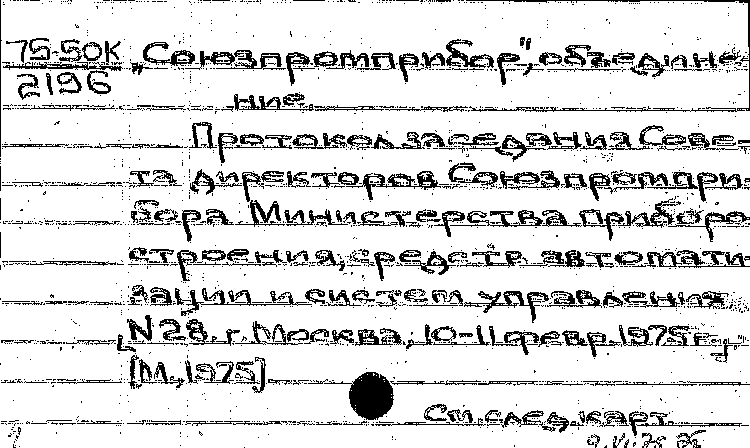 75-50К
2196
„Союзпромприбор", объедине-
ние.
Протокол заседания Сове-
та директоров Союзпромпри-
бора Министерства приборо-
строения, средств автомати-
зации и систем управления
N 28. г. Москва, 10-11 февр. 1975 г.
[М., 1975]
См. след. карт.